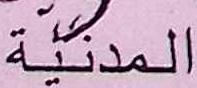 المدنيّة